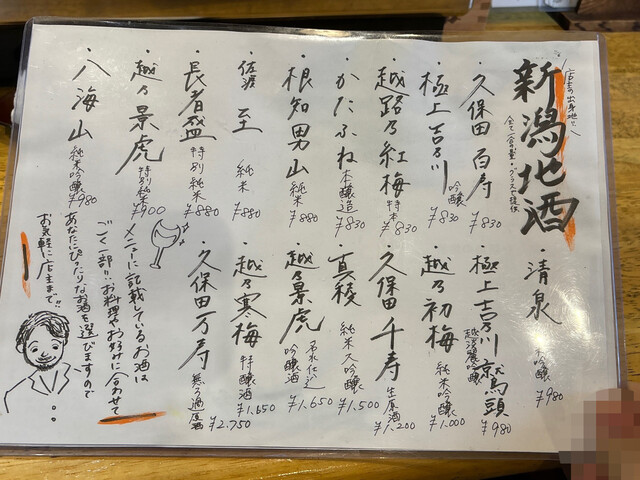 店主の出身地!!
新潟地酒
全て一合量・グラスで提供
・久保田 百寿 ¥830
・極上吉乃川 吟醸 ¥830
・越路乃紅梅 特本 ¥830
・かたふね 本醸造 ¥830
・根知男山 純米 ¥880
・佐渡 至 純米 ¥880
・長者盛 特別純米 ¥880
・越乃景虎 特別純米 ¥900
・八海山 純米吟醸 ¥980
・清泉 吟醸 ¥980
・極上吉乃川 鷲頭 越淡麗吟醸 ¥980
・越乃初梅 純米吟醸 ¥1,000
・久保田千寿 生原酒 ¥1,200
・真稜 純米大吟醸 ¥1,500
・越乃景虎 名水仕込 吟醸酒 ¥1,650
・越乃寒梅 特醸酒 ¥1,650
・久保田万寿 無ろ過原酒 ¥2,750
メニューに記載しているお酒は
ごく一部!!お料理やお好みに合わせて
あなたにぴったりなお酒を選びますので
お気軽に店主まで!!